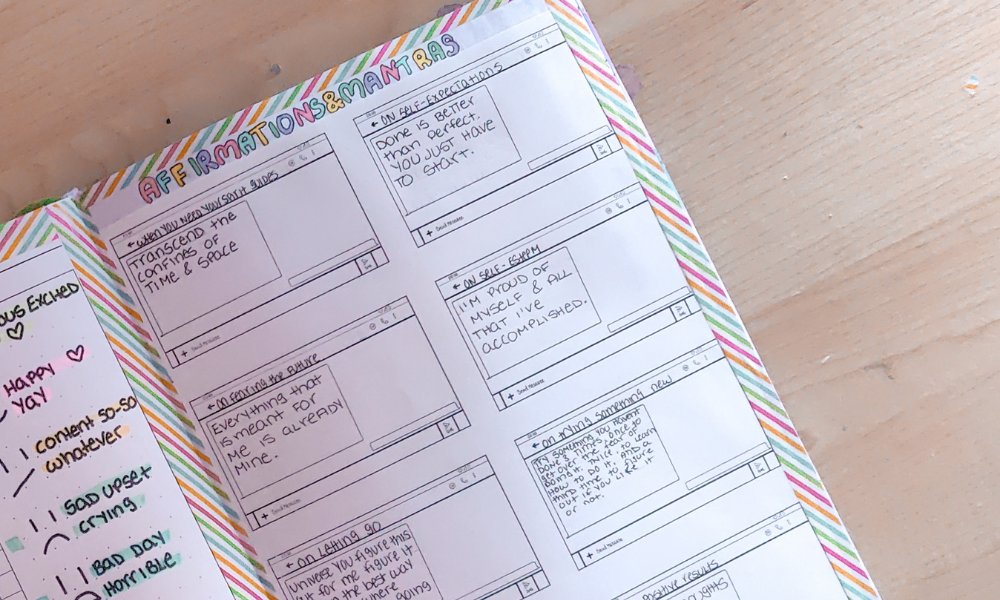 AFFIRMATIONS & MANTRAS
← when you need your spirit guides
TRANSCEND the
CONFINES OF
TIME & SPACE
+ Send Message
← on fearing the future
Everything that
is meant for
me is already
mine.
+ Send Message
← on letting go
UNIVERSE YOU figure this
out for me figure it
the best way
going
← ON SELF-EXPECTATIONS
DONE IS BETTER
than perfect.
YOU JUST HAVE
TO START.
+ Send Message
← ON SELF-ESTEEM
I'M PROUD OF
MYSELF & ALL
THAT I'VE
ACCOMPLISHED.
+ Send Message
← on trying something new
TRY SOMETHING YOU HAVEN'T
DONE 3 TIMES. ONCE TO
get over the fear of
DOING IT. TWICE TO LEARN
HOW TO DO IT. AND A
third time to figure
out if you like it
or not.
+ Send Message
positive results
EXCITED
HAPPY
YAY
content SO-SO
whatever
SAD UPSET
crying
BAD DAY
HORRIBLE